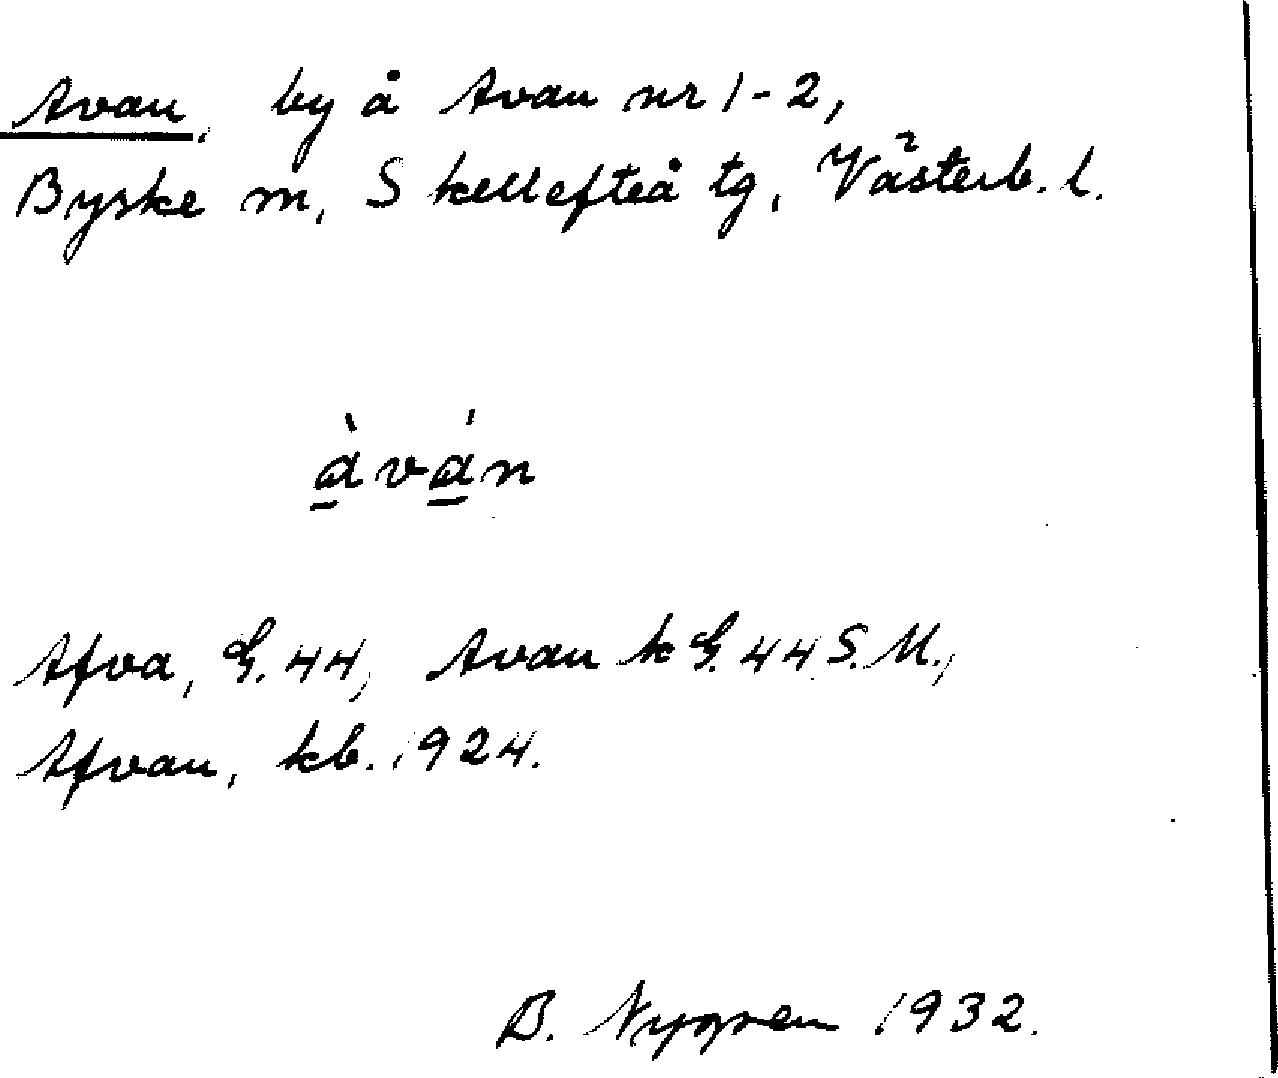 Avan, by å Avan nr 1-2,
Byske sn, Skellefteå tg, Västerb. l.
à̱vá̱n
Afva, G. 44, Avan k G. 44 S. M.,
Afvan, kb. 1924.
B. Nygren 1932.